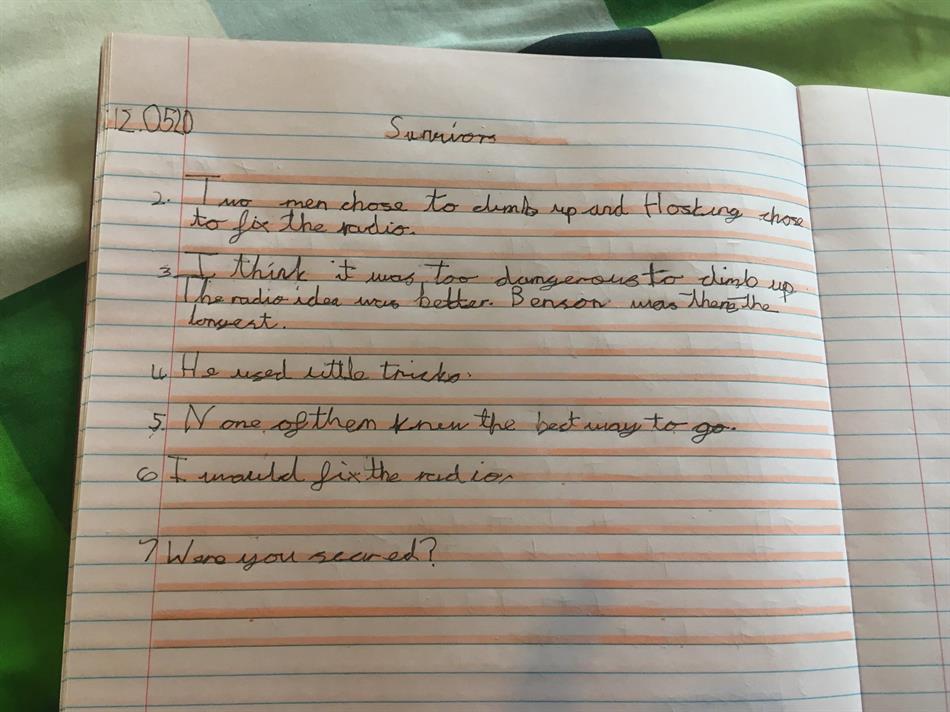 12.0520
Survivors
2. Two men chose to climb up and Hosking chose
to fix the radio.
3. I think it was too dangerous to climb up.
The radio idea was better. Benson was there the
longest.
4 He used little tricks.
5. None of them knew the best way to go.
6 I would fix the radio.
7 Were you scared?